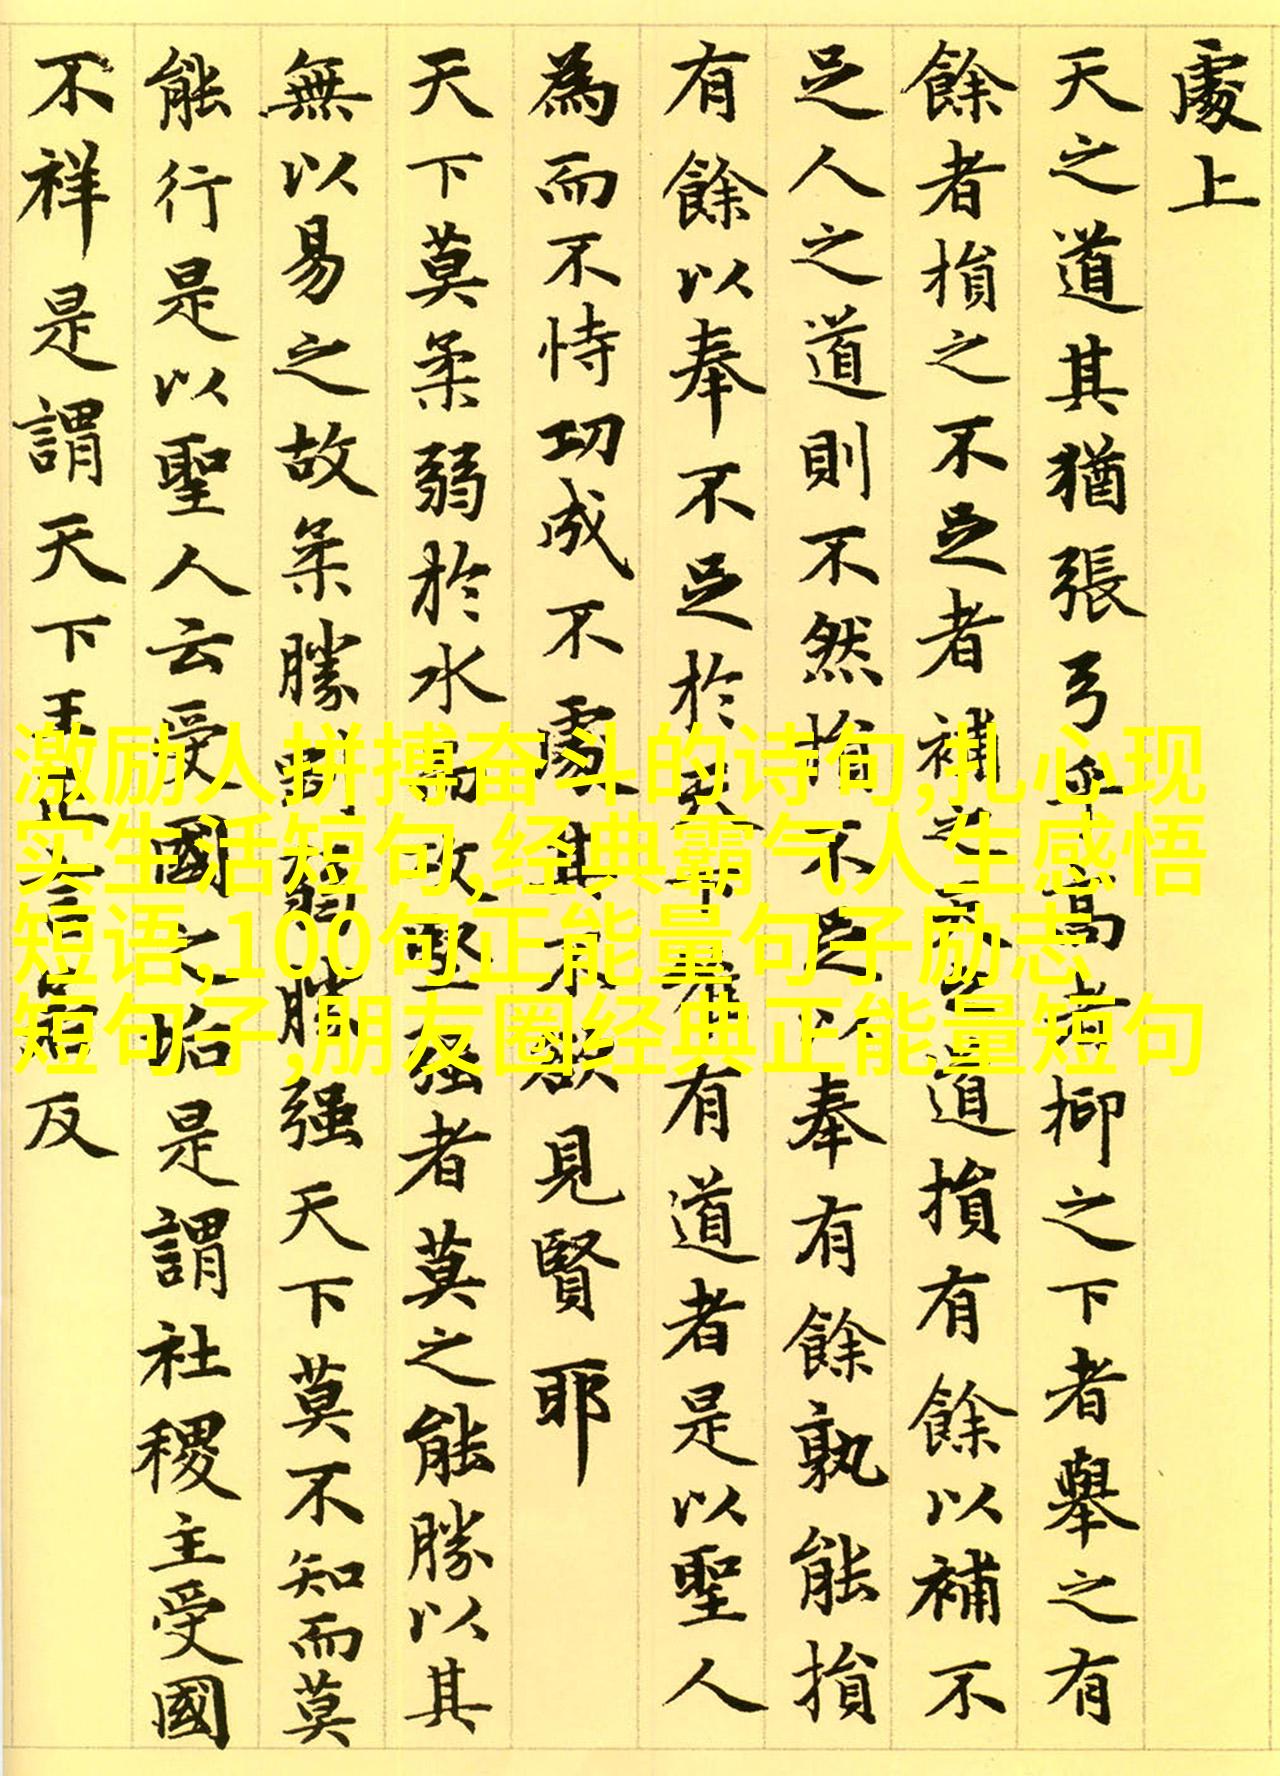 處上
天之道其猶張弓乎高者抑之下者舉之有
餘者損之不足者補之天之道損有餘以補不
足人之道則不然損不足以奉有餘孰能損
有餘以奉不足於天下唯有道者是以聖人
為而不恃功成不處其不欲見賢耶
天下莫柔弱於水而攻堅强者莫之能勝以其
無以易之故柔勝剛弱勝强天下莫不知而莫
能行是以聖人云受國之垢是謂社稷主受國
不祥是謂天下王正言若反
激励人拼搏奋斗的诗句,扎心现
实生活短句,经典霸气人生感悟
短语,100句正能量句子励志
短句子,朋友圈经典正能量短句